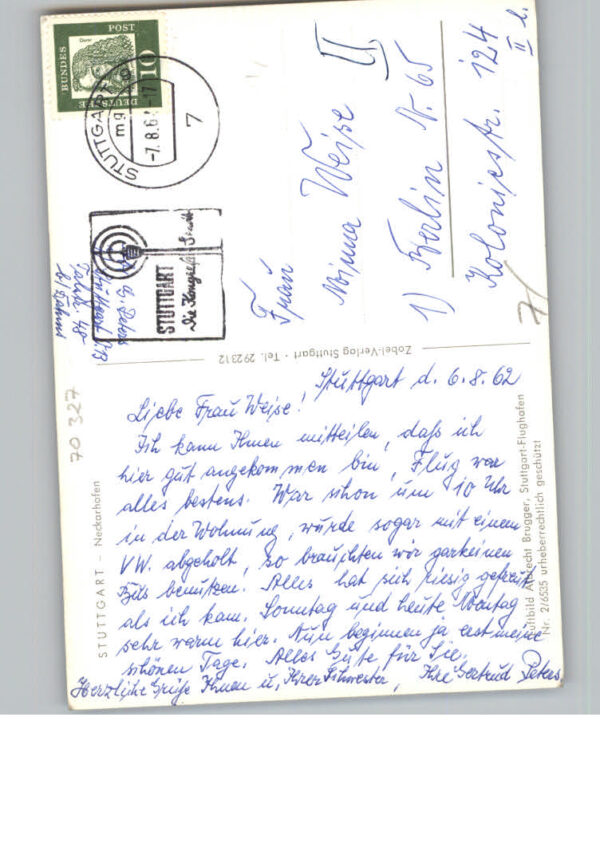 DEUTSCHE
BUNDES
POST
10
Dürer
STUTTGART 9
mg
-7.8.62-17
7
STUTTGART
Die Kongreß-Stadt
Frau
Minna Weise
II
1) Berlin N. 65
Koloniestr. 124
II
7/
Abs. G. Peters
70 327
Zobel-Verlag Stuttgart · Tel. 292312
STUTTGART - Neckarhafen
Luftbild Albrecht Brugger, Stuttgart-Flughafen
Nr. 2/6535 urheberrechtlich geschützt
Stuttgart d. 6.8.62
Liebe Frau Weise!
Ich kann Ihnen mitteilen, daß ich
hier gut angekommen bin, Flug war
alles bestens. War schon um 10 Uhr
in der Wohnung, wurde sogar mit einem
VW. abgeholt, so brauchten wir garkeinen
Bus benutzen. Alles hat sich riesig gefreut
als ich kam. Sonntag und heute Montag
sehr warm hier. Nun beginnen ja erst meine
schönen Tage. Alles Gute für Sie.
Herzliche Grüße Ihnen u. Ihrer Schwester, Ihre Gertrud Peters